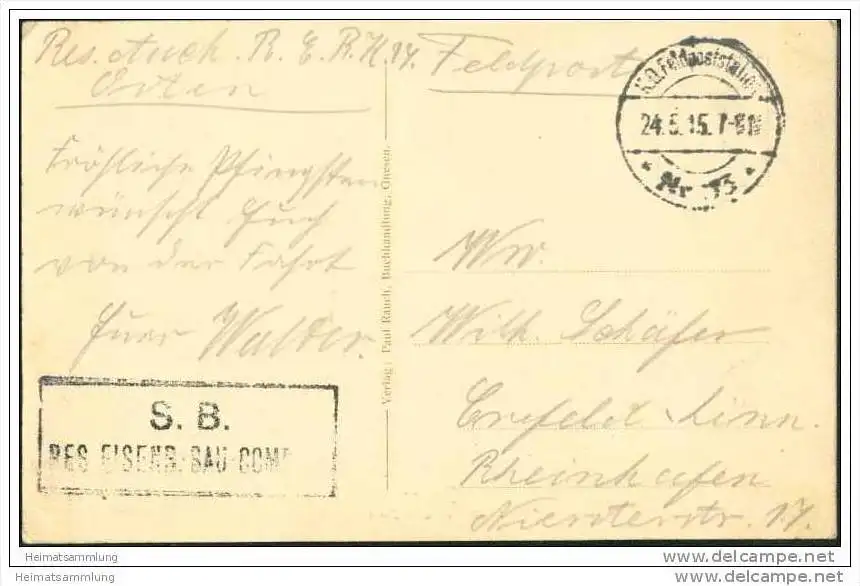 Res. R. E. B. K. 14. Feldpost
Osten
Fröhliche Pfingsten
wünscht Euch
von der Fahrt
Euer Walter.
K.D.Feldpoststation
24.5.15. 7-8N
* Nr 33 *
Ww.
Wilh. Schäfer
Crefeld Linn.
Rheinhafen
Verlag: Paul Rauch, Buchhandlung, Gnesen.
S. B.
RES EISENB. BAU COMP
Heimatsammlung
Heimatsammlung
www.delcampe.net